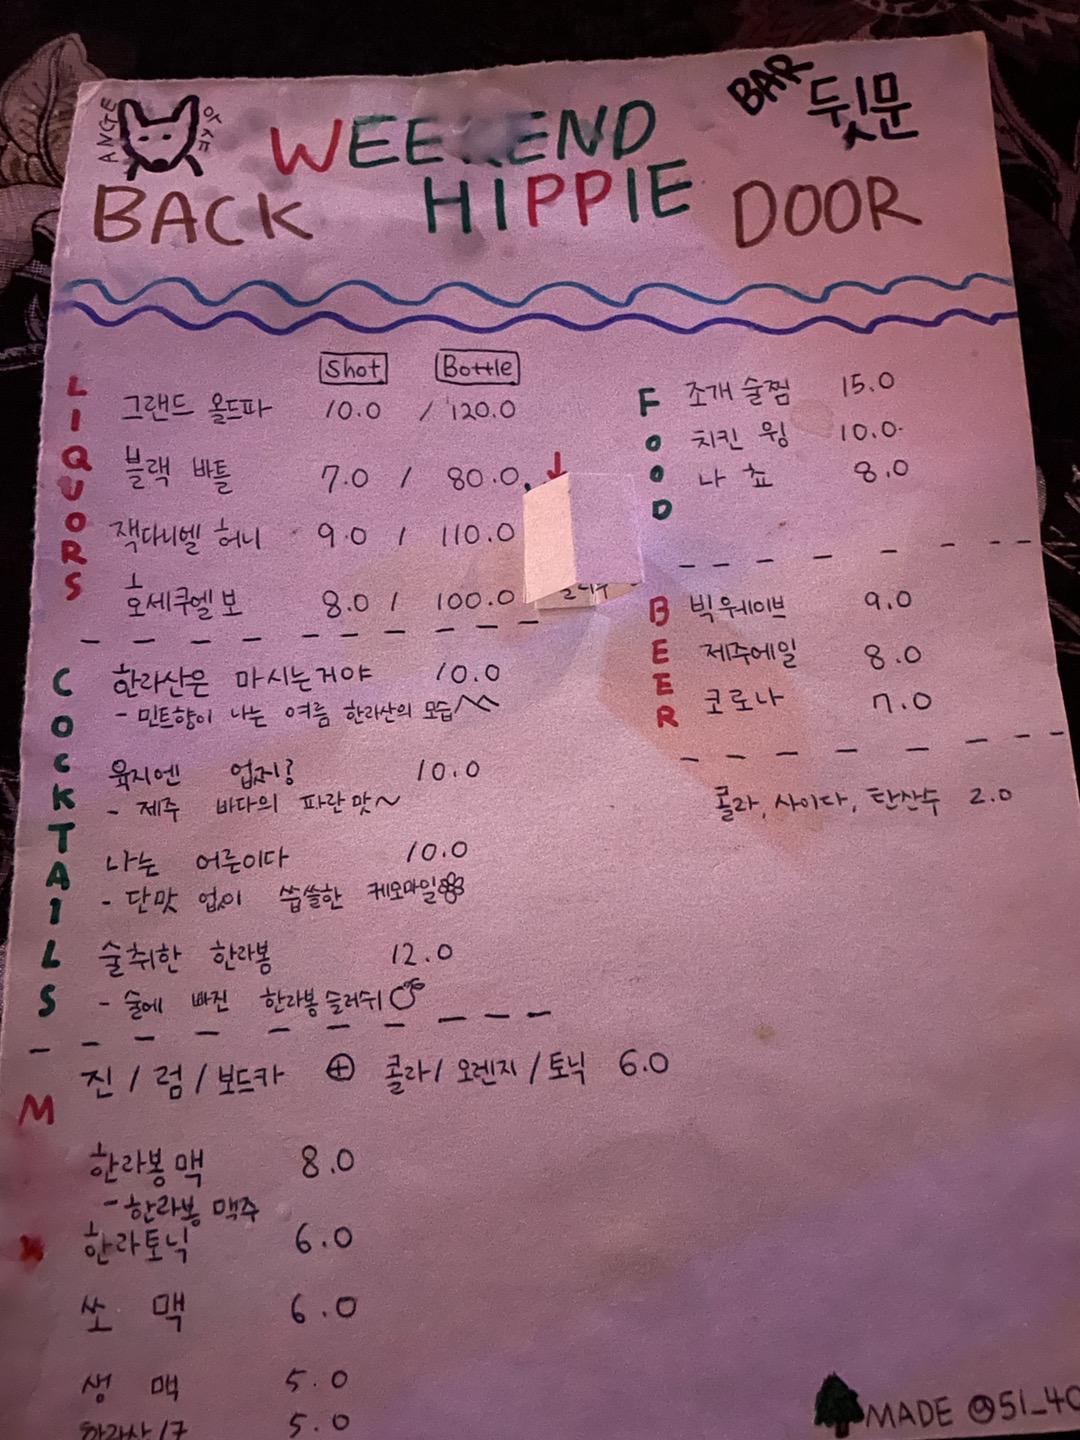 ANGE
BAR 뒷문
WEEKEND
BACK HIPPIE DOOR
LIQUORS
Shot Bottle
그랜드 올드파 10.0 / 120.0
블랙 바틀 7.0 / 80.0
잭다니엘 허니 9.0 / 110.0
호세쿠엘보 8.0 / 100.0
COCKTAILS
한라산은 마시는거야 10.0
- 민트향이 나는 여름 한라산의 모습
육지엔 업지? 10.0
- 제주 바다의 파란맛~
나는 어른이다 10.0
- 단맛 없이 씁쓸한 케모마일
술취한 한라봉 12.0
- 술에 빠진 한라봉슬러쉬
M
진 / 럼 / 보드카 + 콜라 / 오렌지 / 토닉 6.0
한라봉맥 8.0
- 한라봉 맥주
한라토닉 6.0
쏘 맥 6.0
생 맥 5.0
5.0
FOOD
조개술찜 15.0
치킨 윙 10.0
나쵸 8.0
BEER
빅웨이브 9.0
제주에일 8.0
코로나 7.0
콜라, 사이다, 탄산수 2.0
MADE @51_40